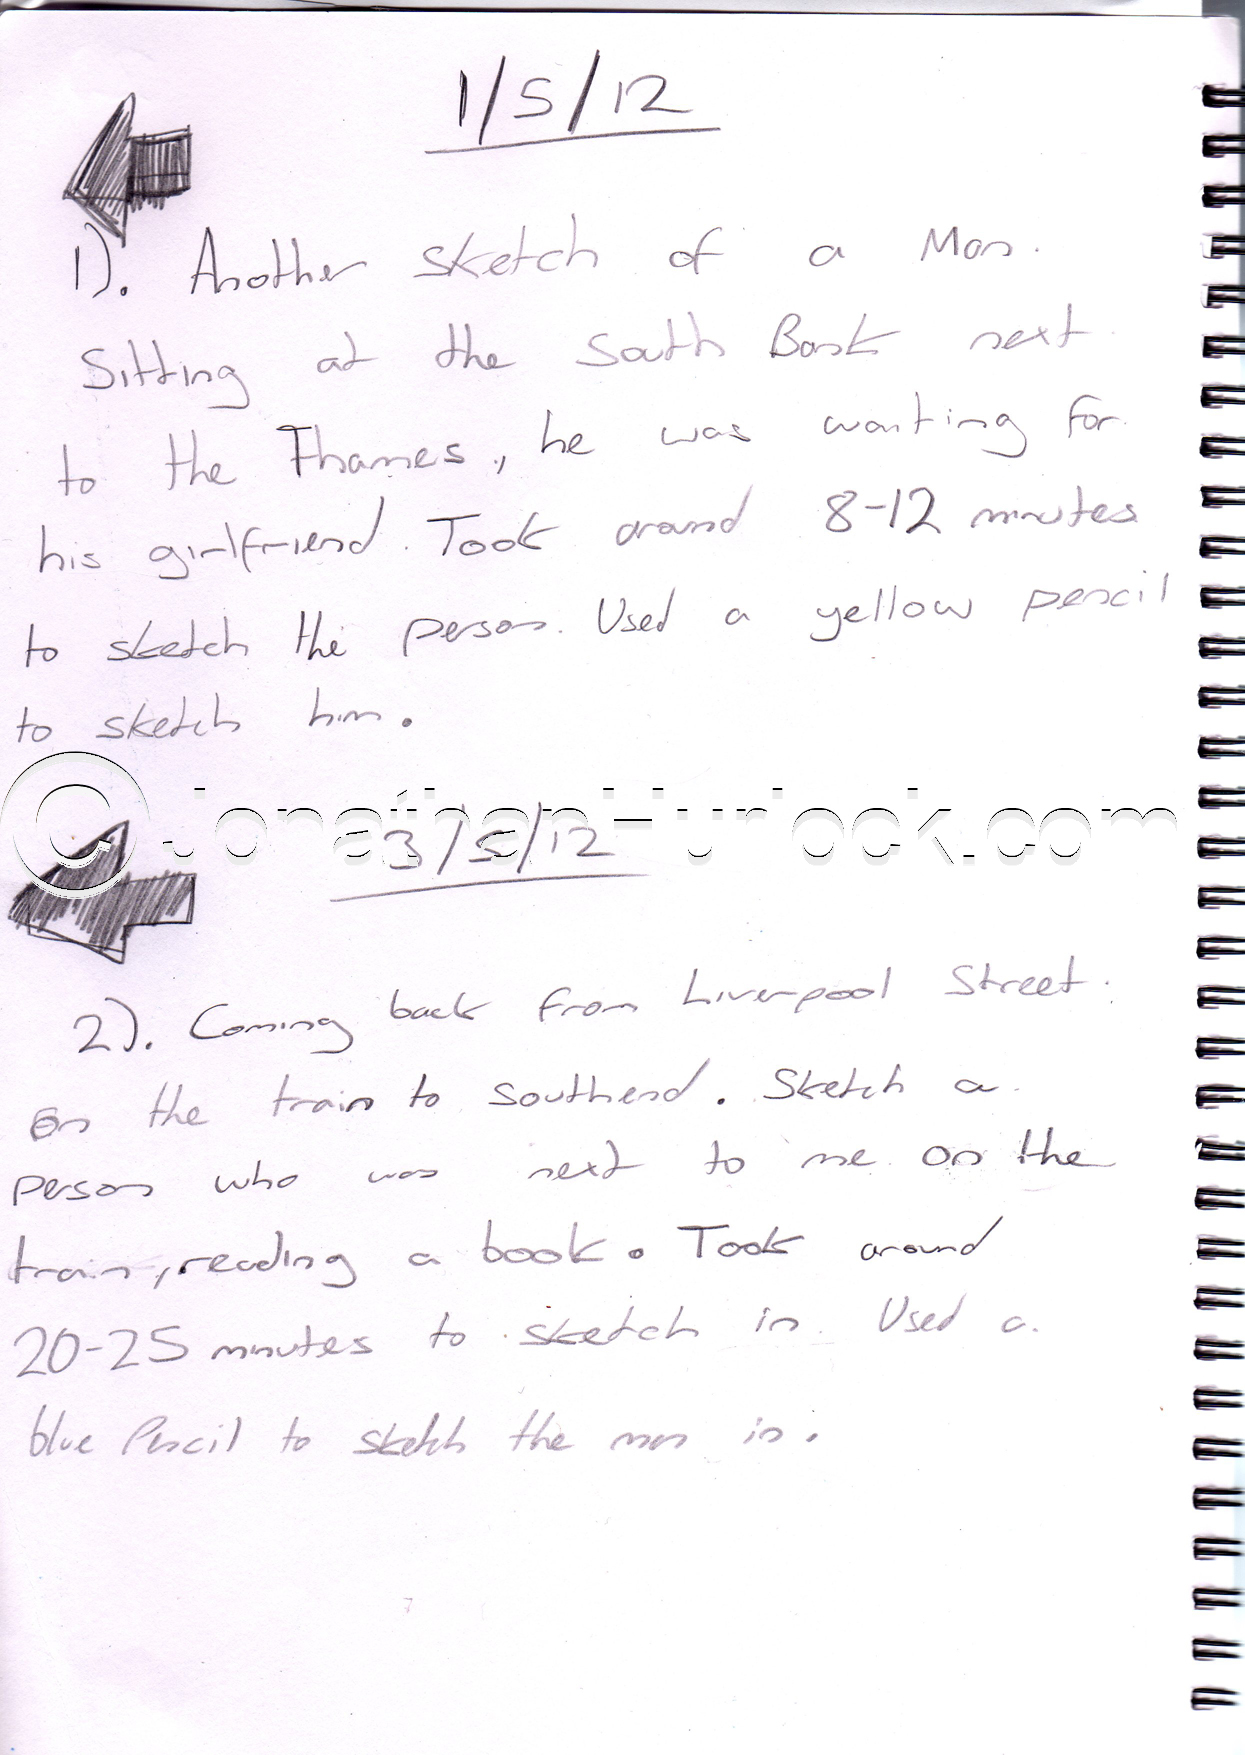 1/5/12
1). Another sketch of a Man.
Sitting at the South Bank next
to the Thames, he was waiting for
his girlfriend. Took around 8-12 minutes
to sketch the person. Used a yellow pencil
to sketch him.
© JonathanHurlock.com
3/5/12
2). Coming back from Liverpool Street.
on the train to Southend. Sketch a
person who was next to me on the
train, reading a book. Took around
20-25 minutes to sketch in. Used a.
blue Pencil to sketch the man in.